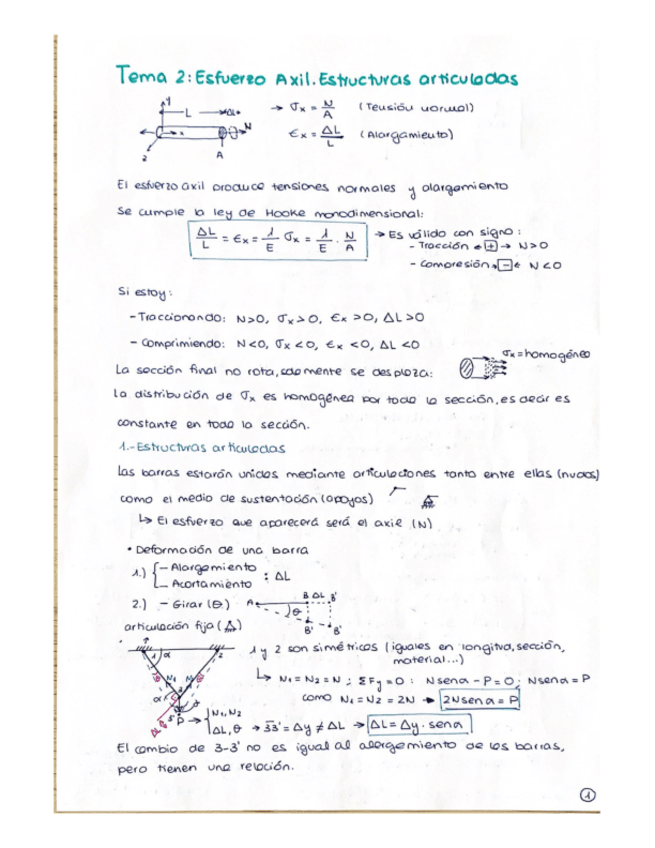 Tema 2: Esfuerzo Axil. Estructuras articuladas
y
L
ΔL
N
x
z
A
→ σx = N/A (Tensión normal)
εx = ΔL/L (Alargamiento)
El esfuerzo axil produce tensiones normales y alargamiento
Se cumple la ley de Hooke monodimensional:
ΔL/L = εx = 1/E σx = 1/E · N/A → Es válido con signo:
- Tracción ←[+]→ N>0
- Compresión →[-]← N<0
Si estoy:
- Traccionando: N>0, σx>0, εx>0, ΔL>0
- Comprimiendo: N<0, σx<0, εx<0, ΔL<0
σx = homogéneo
La sección final no rota, solamente se desplaza:
La distribución de σx es homogénea por toda la sección, es decir es
constante en toda la sección.
1.- Estructuras articuladas
Las barras estarán unidas mediante articulaciones tanto entre ellas (nudos)
como el medio de sustentación (apoyos)
↳ El esfuerzo que aparecerá será el axil (N)
• Deformación de una barra
1.) { - Alargamiento
- Acortamiento : ΔL
2.) - Girar (θ) A B ΔL B'
θ
B' B'
articulación fija ( )
1 α 2
1 y 2 son simétricos (iguales en longitud, sección,
material...)
↳ N1 = N2 = N ; ΣFy = 0 : Nsenα - P = 0 ; Nsenα = P
como N1 = N2 = 2N → 2Nsenα = P
P → { N1, N2
ΔL, θ → 33' = Δy ≠ ΔL → ΔL = Δy · senα
El cambio de 3-3' no es igual al alargamiento de las barras,
pero tienen una relación.
1